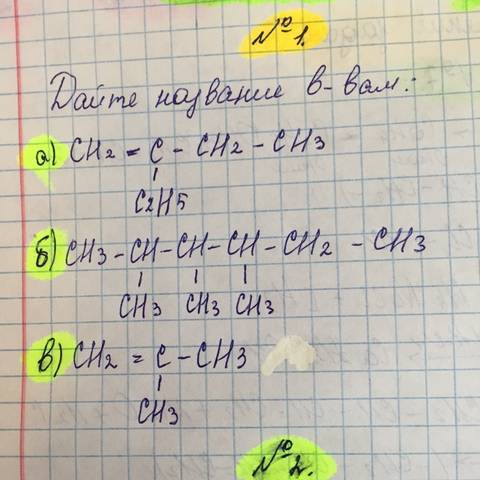 №1.
Дайте название в-вам:
а) CH2 = C - CH2 - CH3
C2H5
б) CH3 - CH - CH - CH - CH2 - CH3
CH3 CH3 CH3
в) CH2 = C - CH3
CH3
№2.